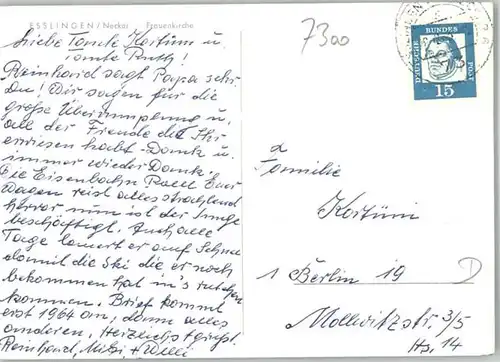 ESSLINGEN/Neckar Frauenkirche
Liebe Tante Kortüm u.
Tante Ruth!
Reinhard sagt Papa schr.
Du! Wir sagen für die
große Überrumplung u.
all der Freude die Ihr
erwiesen habt - Dank u.
immer wieder Dank!
Die Eisenbahn
Wagen alles
hervor nun ist der Junge
beschäftigt. Auch alle
Tage lauert er auf Schnee
damit die Ski die er noch
bekommen hat in's rutschen
kommen. Brief kommt
erst 1964 an, dann alles
anderen. Herzlichst grüßt
Reinhard, + Willi
7300
DEUTSCHE BUNDES POST
15
Familie
Kortüm
1 Berlin 19
Mollwitzstr. 3/5
Hs. 14